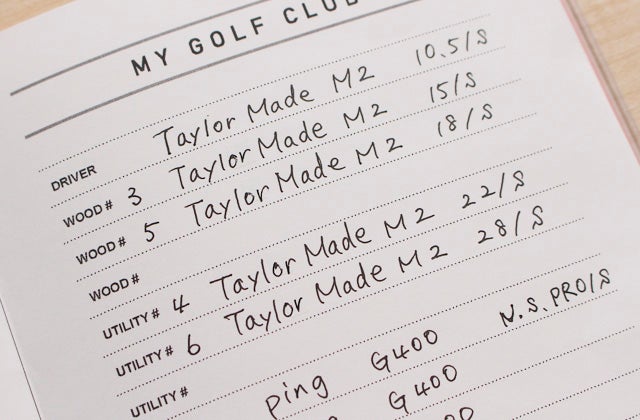 MY GOLF CLUB
DRIVER Taylor Made M2 10.5/S
WOOD # 3 Taylor Made M2 15/S
WOOD # 5 Taylor Made M2 18/S
WOOD #
UTILITY # 4 Taylor Made M2 22/S
UTILITY # 6 Taylor Made M2 28/S
UTILITY #
ping G400 N.S.PRO/S
G400